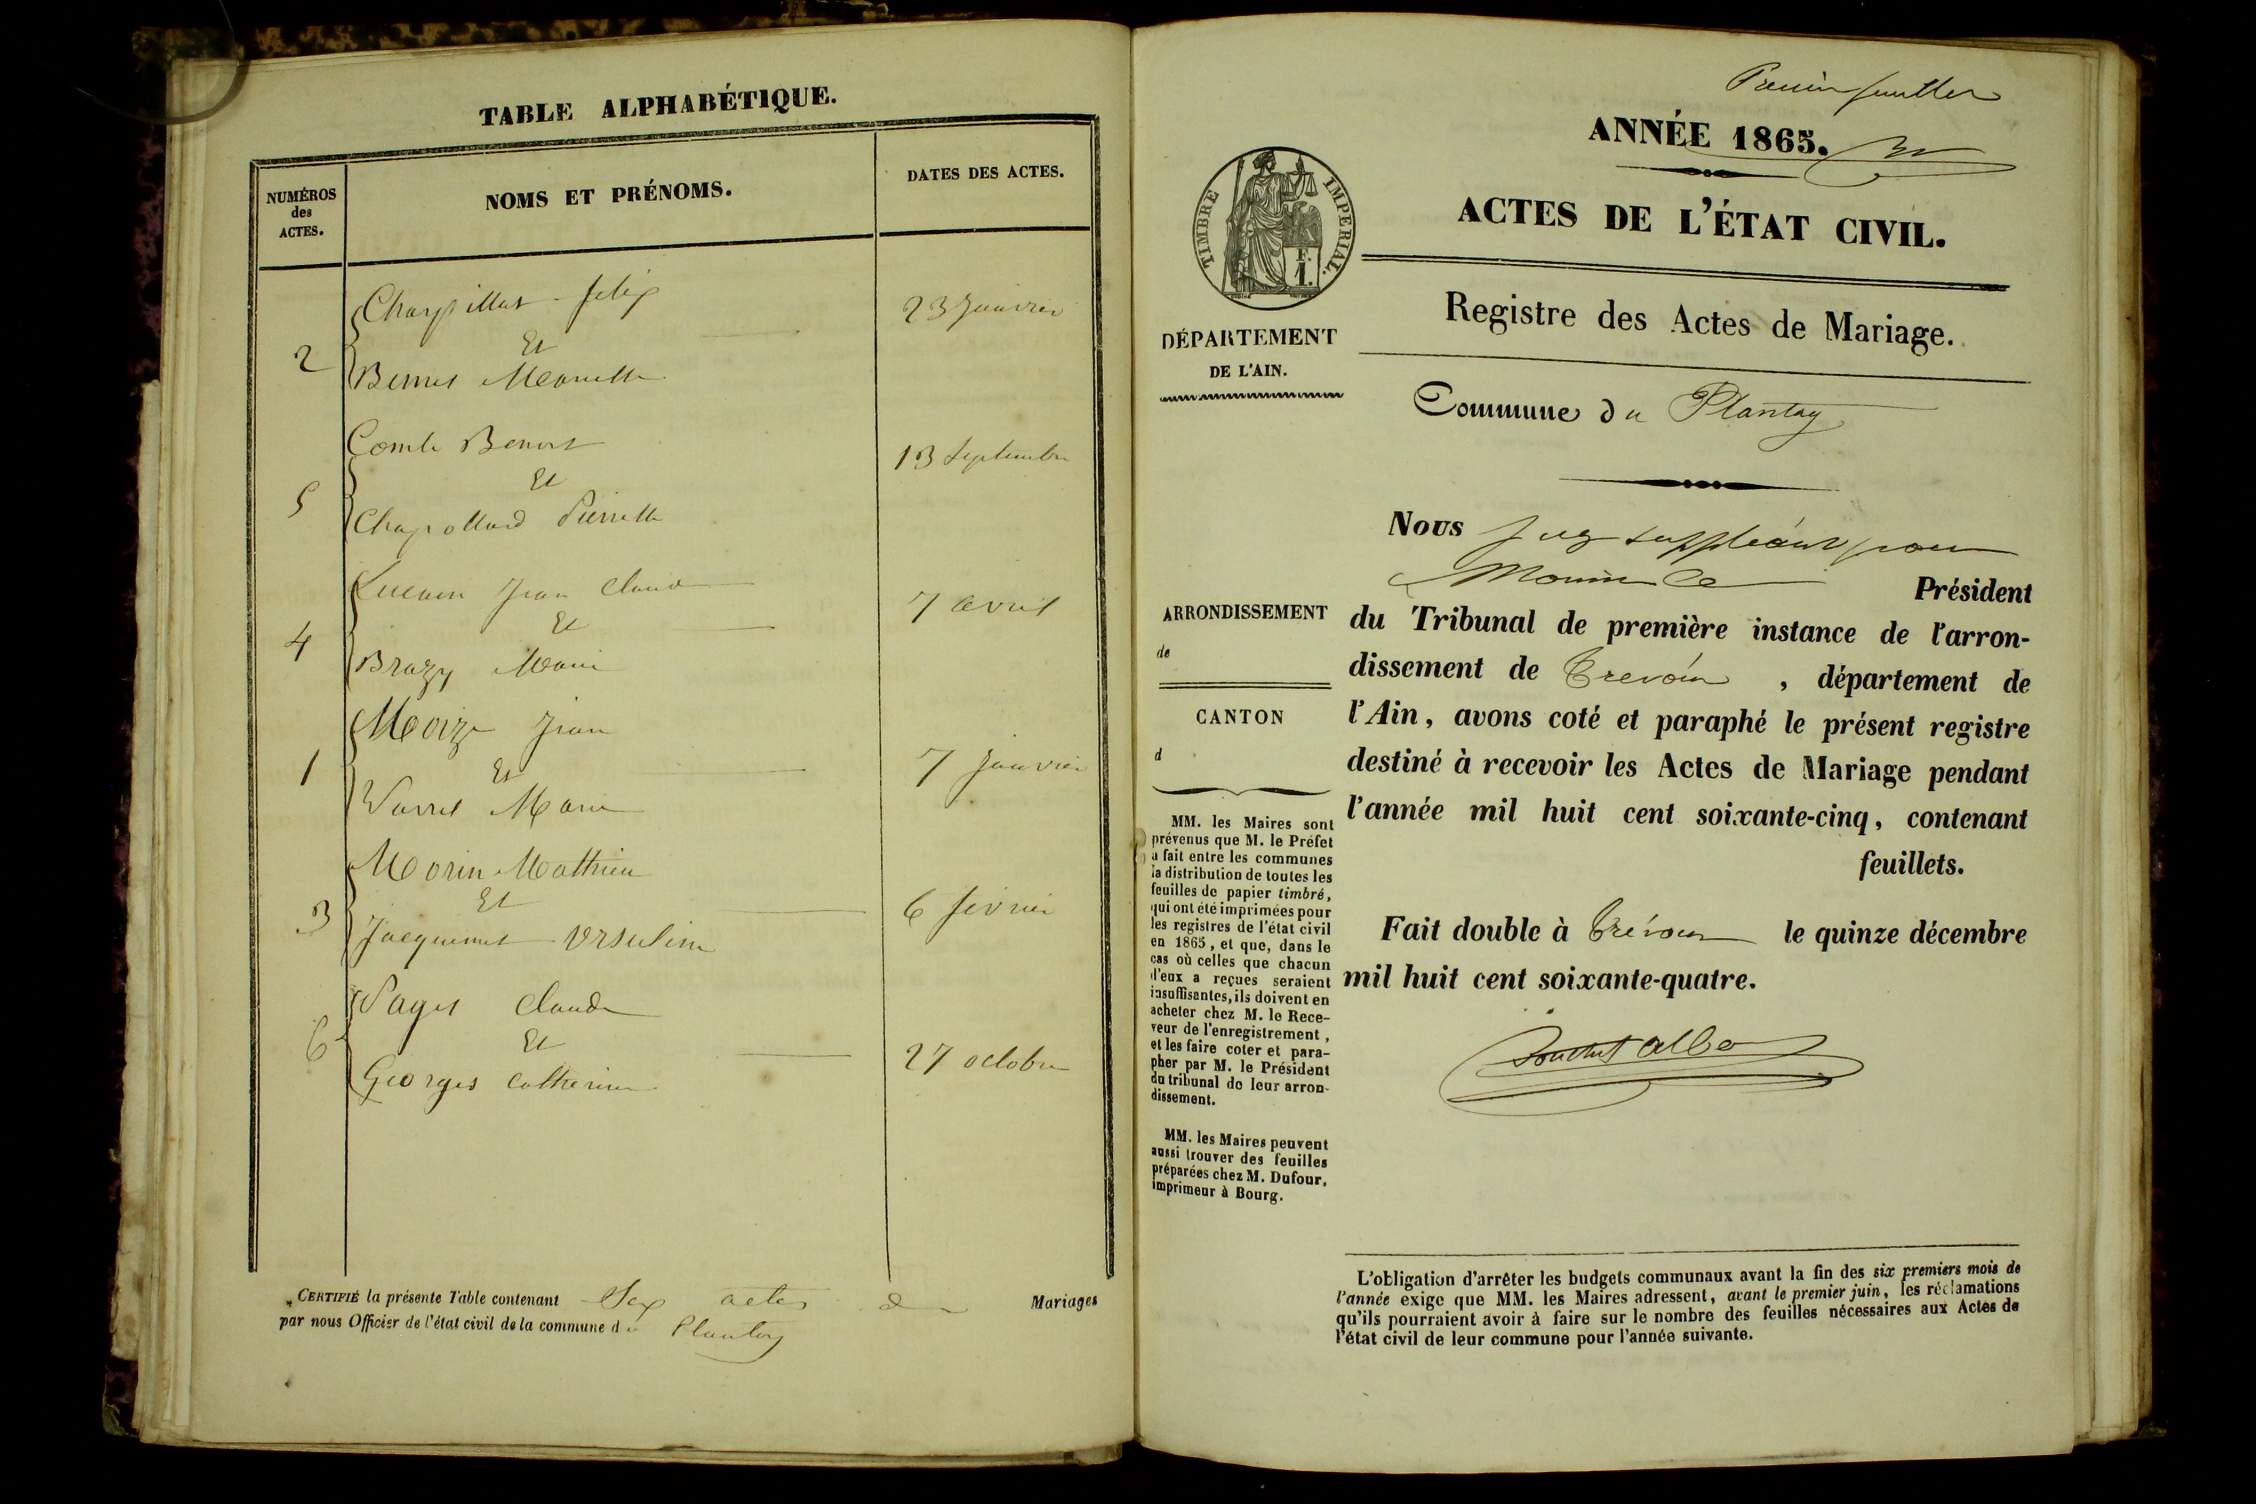 TABLE ALPHABÉTIQUE.
NUMÉROS
des
ACTES.
NOMS ET PRÉNOMS.
DATES DES ACTES.
Charpillat felix
23 Janvier
Et
2
Bernet
Comte Benoit
13 Septembre
Et
5
Chapolard Pierrette
Jean Claude
7 avril
Et
4
Brazy Marie
Jean
1
Et
7 Janvier
Marie
Morin Mathieu
Et
6 fevrier
3
Jacquemet Ursuline
Pagis Claude
6
Et
27 octobre
Georges Catherine
CERTIFIÉ la présente Table contenant Six actes de Mariages
par nous Officier de l'état civil de la commune du Plantay
Premier feuillet
ANNÉE 1865.
ACTES DE L'ÉTAT CIVIL.
TIMBRE IMPERIAL.
F.
1.
Registre des Actes de Mariage.
DÉPARTEMENT
DE L'AIN.
Commune du Plantay
Nous Juge suppléant pour
Monsieur le Président
du Tribunal de première instance de l'arron-
dissement de Trevoux, département de
l'Ain, avons coté et paraphé le présent registre
destiné à recevoir les Actes de Mariage pendant
l'année mil huit cent soixante-cinq, contenant
feuillets.
Fait double à Trévoux le quinze décembre
mil huit cent soixante-quatre.
ARRONDISSEMENT
de
CANTON
d
MM. les Maires sont
prévenus que M. le Préfet
a fait entre les communes
la distribution de toutes les
feuilles de papier timbré,
qui ont été imprimées pour
les registres de l'état civil
en 1865, et que, dans le
cas où celles que chacun
d'eux a reçues seraient
insuffisantes, ils doivent en
acheter chez M. le Rece-
veur de l'enregistrement,
et les faire coter et para-
pher par M. le Président
du tribunal de leur arron-
dissement.
MM. les Maires peuvent
aussi trouver des feuilles
préparées chez M. Dufour,
imprimeur à Bourg.
L'obligation d'arrêter les budgets communaux avant la fin des six premiers mois de
l'année exige que MM. les Maires adressent, avant le premier juin, les réclamations
qu'ils pourraient avoir à faire sur le nombre des feuilles nécessaires aux Actes de
l'état civil de leur commune pour l'année suivante.